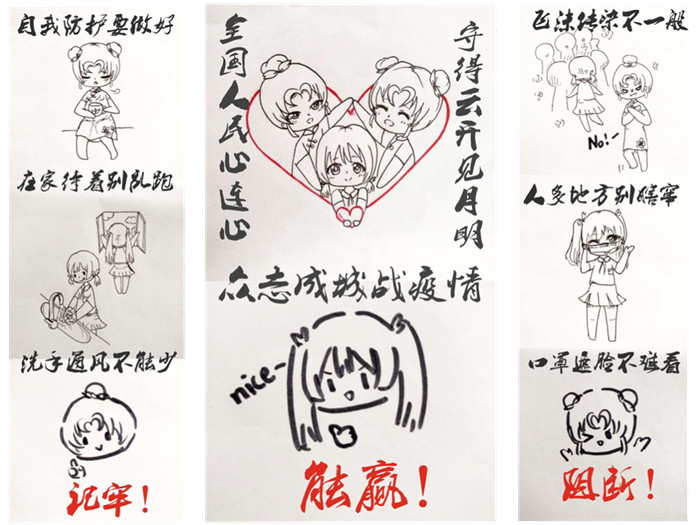 自我防护要做好
在家待着别乱跑
洗手通风不能少
记牢！
全国人民心连心
守得云开见月明
众志成城战疫情
nice~
能赢！
飞沫传染不一般
No!~
人多地方别瞎窜
口罩遮脸不难看
阻断！